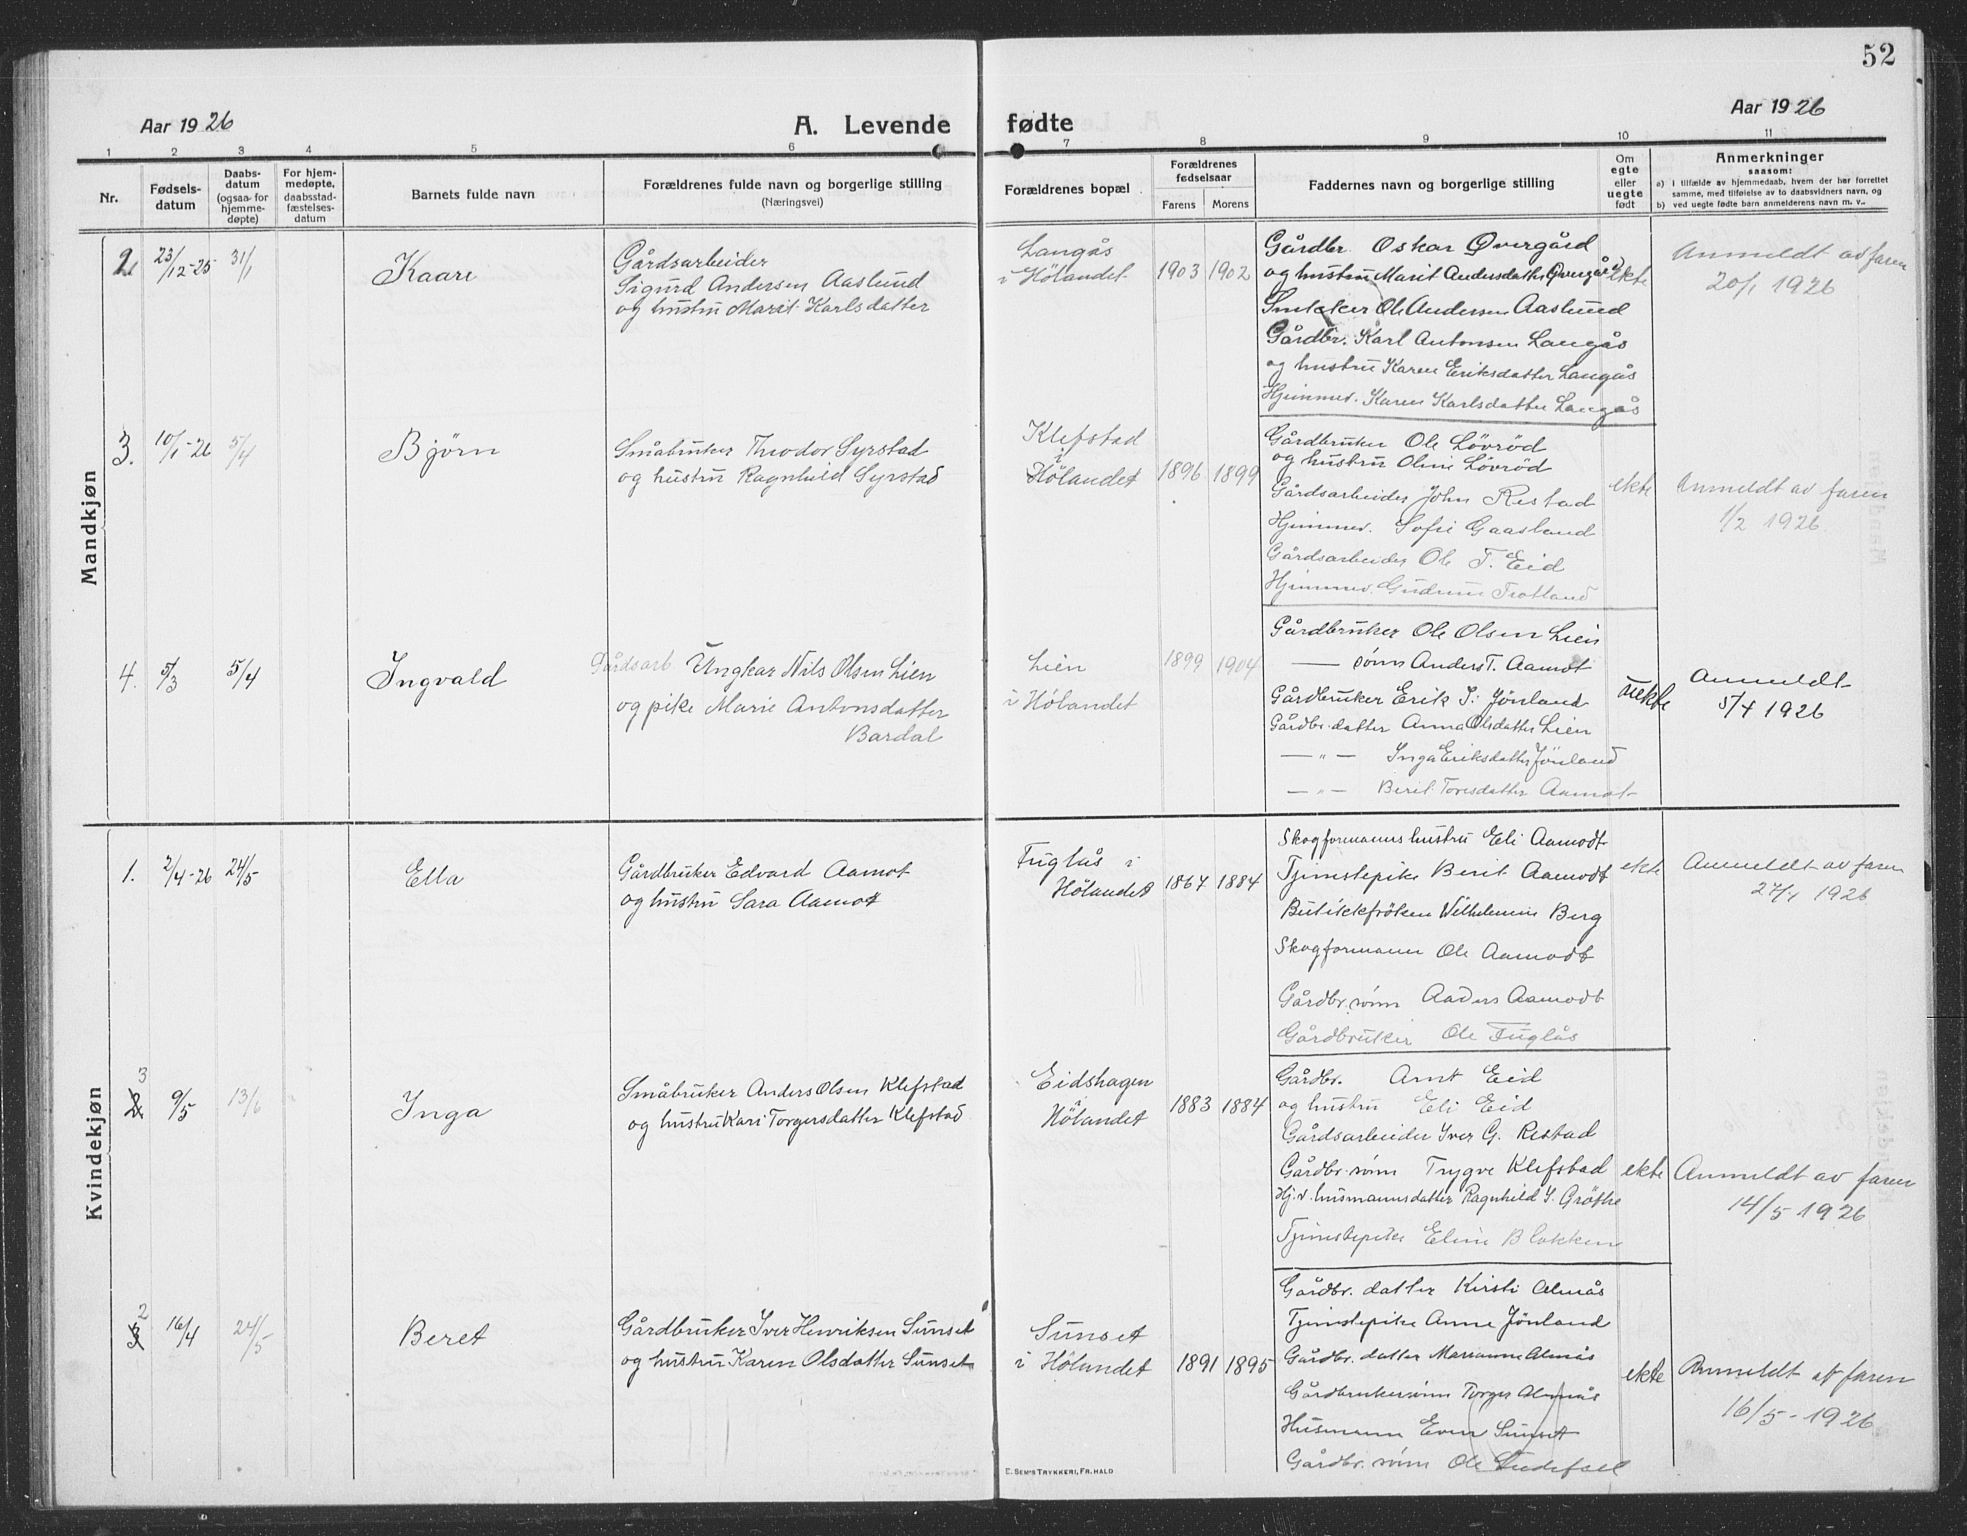 52
Aar 1926
A. Levende fødte
Aar 1926
1 2 3 4 5 6 7 8 9 10 11
Nr.
Fødsels-
datum
Daabs-
datum
(ogsaa for
hjemme-
døpte)
For hjem-
medøpte,
daabsstad-
fæstelses-
datum
Barnets fulde navn
Forældrenes fulde navn og borgerlige stilling
(Næringsvei)
Forældrenes bopæl
Forældrenes
fødselsaar
Farens Morens
Faddernes navn og borgerlige stilling
Om
egte
eller
uegte
født
Anmerkninger
saasom:
a) I tilfælde av hjemmedaab, hvem der har forrettet
samme, med tilføielse av to daabsvidners navn, og
b) ved uegte fødte barn anmelderens navn m. v..
Mandkjøn
2. 23/12-25 31/1
Kaare
Gårdsarbeider
Sigurd Andersen Aaslund
og hustru Marit Karlsdatter
Langås
i Hölandet
1903 1902
Gårdbr. Oskar Øvergård
og hustru Marit Andersdatter Øvergård
Snekker Ole Andersen Aaslund
Gårdbr. Karl Antonsen Langås
og hustru Karen Eriksdatter Langås
Hjemmev. Karen Karlsdatter Langås
ekte
Anmeldt av faren
20/1 1926
3. 10/1-26 5/4
Bjørn
Småbruker Theodor Syrstad
og hustru Ragnhild Syrstad
Klefstad
i
Hölandet
1896 1899
Gårdbruker Ole Lövröd
og hustru Oline Lövröd
Gårdsarbeider John Restad
Hjemmev. Sofie Gaasland
Gårdsarbeider Ole T. Eid
Hjemmev. Gudrun Trotland
ekte
Anmeldt av faren
1/2 1926
4. 5/3 5/4
Ingvald
Gårdsarb. Ungkar Nils Olsen Lien
og pike Marie Antonsdatter
Bardal
Lien
i Hölandet
1899 1904
Gårdbruker Ole Olsen Lien
— sönn Anders T. Aamot
Gårdbruker Erik I. Jönland
Gårdbr. datter Anna Olsdatter Lien
— " — Inga Eriksdatter Jönland
— " — Berit Toresdatter Aamot
uekte
Anmeldt
5/4 1926
Kvindekjøn
1. 2/4-26 24/5
Ella
Gårdbruker Edvard Aamot
og hustru Sara Aamot
Fuglås i
Hölandet
1867 1884
Skogformanns hustru Eli Aamodt
Tjenestepike Berit Aamodt
Butikkfröken Wilhelmine Berg
Skogformann Ole Aamodt
Gårdbr. sönn Anders Aamodt
Gårdbruker Ole Fuglås
ekte
Anmeldt av faren
27/4 1926
3
2 9/5 13/6
Inga
Småbruker Anders Olsen Klefstad
og hustru Kari Torgersdatter Klefstad
Eidshagen
i
Hölandet
1883 1884
Gårdbr. Arnt Eid
og hustru Eli Eid
Gårdsarbeider Iver G. Restad
Gårdbr. sönn Trygve Klefstad
Hj.v. husmannsdatter Ragnhild I. Gröthe
Tjenestepike Eline Blokken
ekte
Anmeldt av faren
14/5 1926
2
3 16/4 24/5
Beret
Gårdbruker Iver Henriksen Sunset
og hustru Karen Olsdatter Sunset
Sunset
i Hölandet
1891 1895
Gårdbr. datter Kirsti Almås
Tjenestepike Anne Jönland
Gårdbr. datter Marianne Almås
Gårdbrukersönn Torger Almås
Husmann Even Sunset
Gårdbr. sönn Ole
ekte
Anmeldt af faren
16/5-1926
E. SEM'S TRYKKERI, FR.HALD